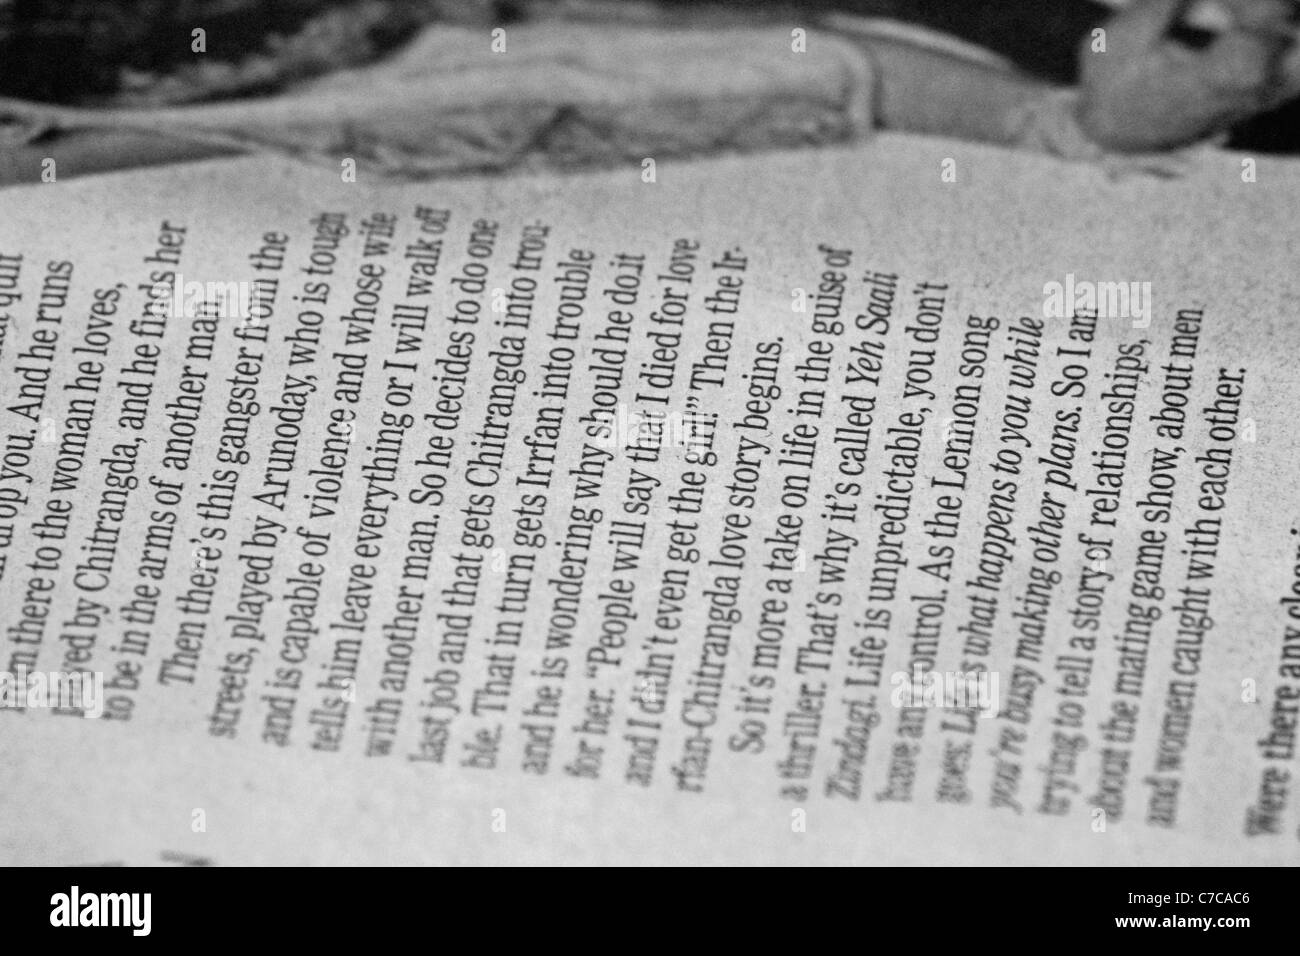 drop you. And he runs
from there to the woman he loves,
played by Chitrangda, and he finds her
to be in the arms of another man.
Then there's this gangster from the
streets, played by Arunoday, who is tough
and is capable of violence and whose wife
tells him leave everything or I will walk off
with another man. So he decides to do one
last job and that gets Chitrangda into trou-
ble. That in turn gets Irrfan into trouble
and he is wondering why should he do it
for her. “People will say that I died for love
and I didn't even get the girl!” Then the Ir-
rfan-Chitrangda love story begins.
So it's more a take on life in the guise of
a thriller. That's why it's called Yeh Saali
Zindagi. Life is unpredictable, you don't
have any control. As the Lennon song
goes: Life is what happens to you while
you're busy making other plans. So I am
trying to tell a story of relationships,
about the mating game show, about men
and women caught with each other.
Were there any
alamy
Image ID: C7CAC6
www.alamy.com